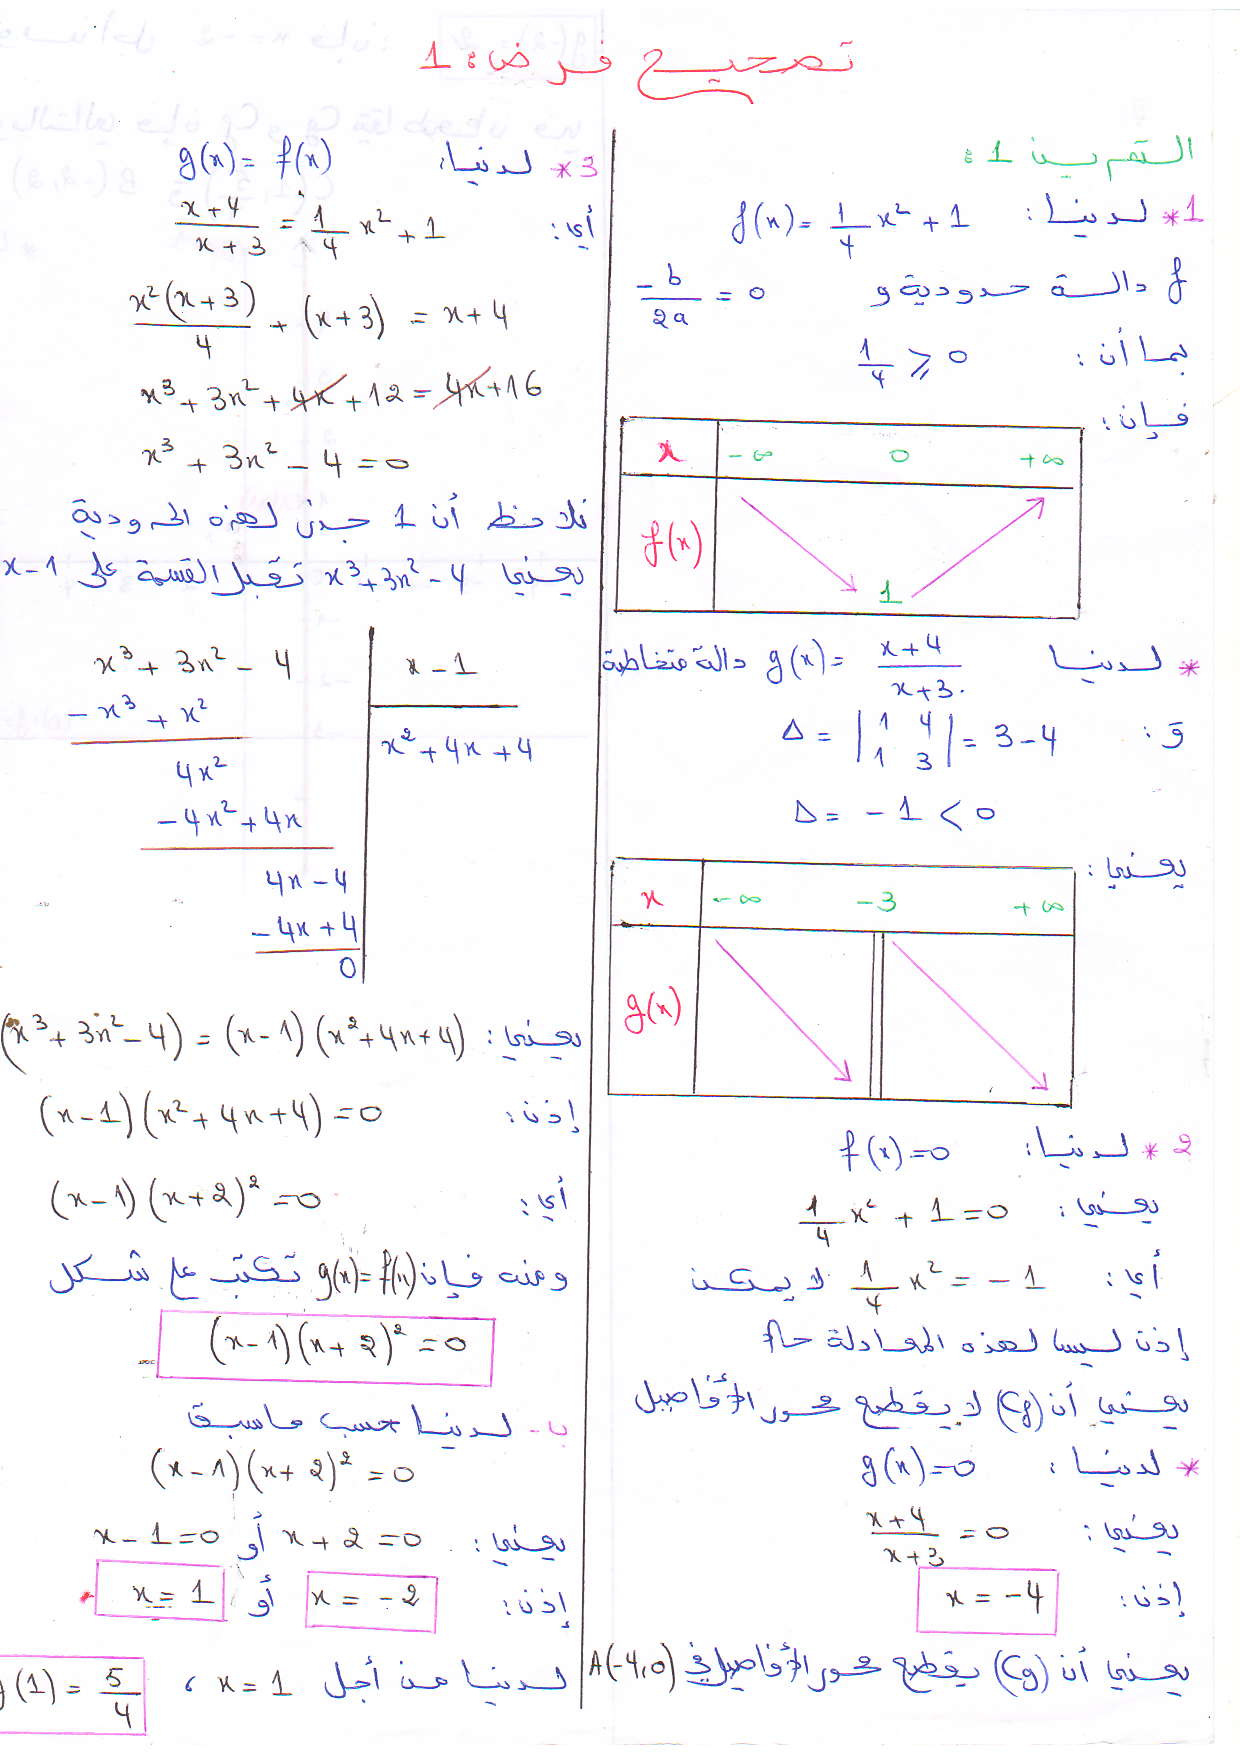 تصحيح فرض: 1
التمرين 1 :
1* لدينا: f(x) = 1/4 x² + 1
f دالة حدودية و -b/2a = 0
بما أن: 1/4 ⩾ 0
فإن:
x -∞ 0 +∞
f(x) 1
* لدينا g(x) = x+4/x+3 دالة متخاطة
و: Δ = |1 4 1 3| = 3-4
Δ = -1 < 0
يعني:
x -∞ -3 +∞
g(x)
2* لدينا: f(x)=0
يعني: 1/4 x² + 1 = 0
أي: 1/4 x² = -1 لا يمكن
إذن ليس لهذه المعادلة حل
يعني أن (Cf) لا يقطع محور الأفاصيل
* لدينا: g(x)=0
يعني: x+4/x+3 = 0
إذن: x = -4
يعني أن (Cg) يقطع محور الأفاصيل في A(-4,0)
3* لدينا، g(x) = f(x)
أي: x+4/x+3 = 1/4 x² + 1
x²(x+3)/4 + (x+3) = x+4
x³ + 3x² + 4x + 12 = 4x + 16
x³ + 3x² - 4 = 0
نلاحظ أن 1 جذر لهذه الحدودية
يعني x³+3x²-4 تقبل القسمة على x-1
x³ + 3x² - 4 x - 1
-x³ + x²
x² + 4x + 4
4x²
-4x² + 4x
4x - 4
-4x + 4
0
يعني: (x³ + 3x² - 4) = (x-1)(x²+4x+4)
إذن: (x-1)(x²+4x+4) = 0
أي: (x-1)(x+2)² = 0
ومنه فإن g(x)=f(x) تكتب على شكل
(x-1)(x+2)² = 0
ب- لدينا حسب ماسبق
(x-1)(x+2)² = 0
يعني: x+2=0 أو x-1=0
إذن: x = -2 أو x = 1
لدينا من أجل x = 1 ، (1) = 5/4